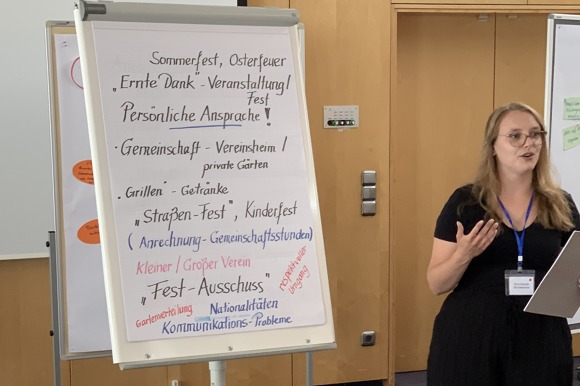 Sommerfest, Osterfeuer
„Ernte Dank"-Veranstaltung/
Fest
Persönliche Ansprache!
· Gemeinschaft - Vereinsheim /
private Gärten
· „Grillen" - Getränke
„Straßen-Fest", Kinderfest
(Anrechnung-Gemeinschaftsstunden)
Kleiner / Großer Verein
„Fest-Ausschuss"
respektvoller
Umgang
Gartenverteilung
Nationalitäten
Kommunikations-Probleme